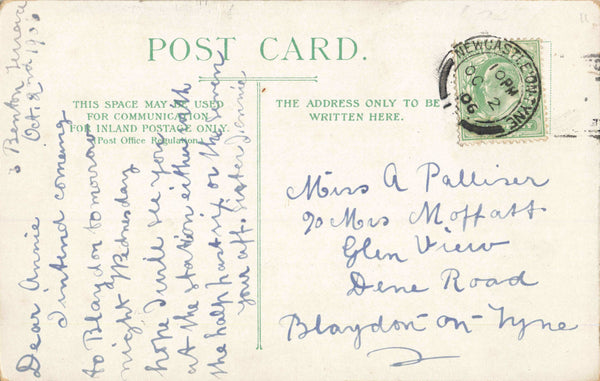 POST CARD.
THIS SPACE MAY BE USED
FOR COMMUNICATION
FOR INLAND POSTAGE ONLY.
(Post Office Regulation.)
THE ADDRESS ONLY TO BE
WRITTEN HERE.
NEWCASTLE-ON-TYNE
10 PM
OC 2
06
Benton Terrace
Oct. 2nd 190
Dear Annie
I intend coming
to Blaydon tomorrow
night Wednesday
hope I will see you
at the station either with
the half past six or the seven
your aff. Sister Jennie
Miss A Palliser
c/o Mrs Moffatt
Glen View
Dene Road
Blaydon-on-Tyne